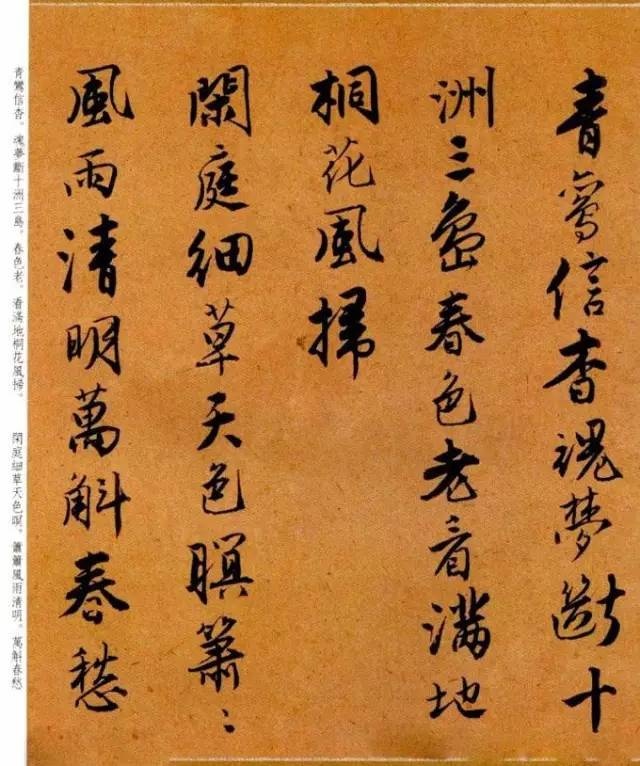 青鸞信杳魂夢斷十
洲三島春色老看滿地
桐花風掃
閑庭細草天色暝簫〻
風雨清明萬斛春愁
青鸞信杳。魂夢斷十洲三島。春色老。看滿地桐花風掃。 閑庭細草天色暝。簫簫風雨清明。萬斛春愁